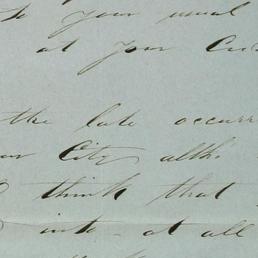 to your usual
at your
the late occurr
City, altho
think that
into at all